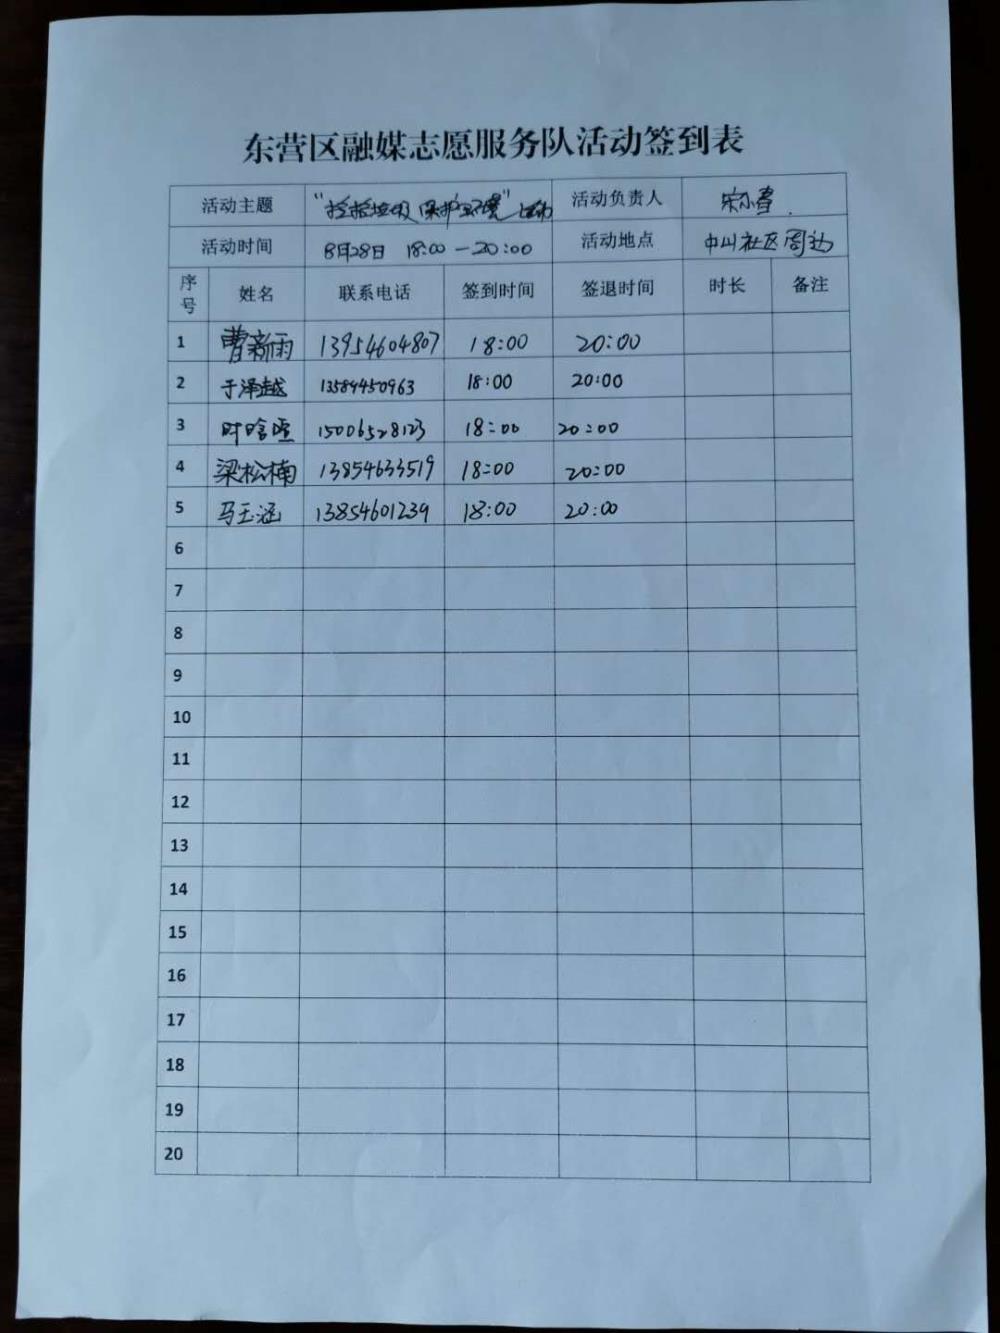 东营区融媒志愿服务队活动签到表
活动主题 "捡捡垃圾 保护环境"活动 活动负责人 宋小春
活动时间 8月28日 18:00-20:00 活动地点 中山社区周边
序号 姓名 联系电话 签到时间 签退时间 时长 备注
1 曹新雨 13954604807 18:00 20:00
2 于泽越 13589450963 18:00 20:00
3 15006528123 18:00 20:00
4 梁松楠 13854633519 18:00 20:00
5 马玉涵 13854601239 18:00 20:00
6
7
8
9
10
11
12
13
14
15
16
17
18
19
20